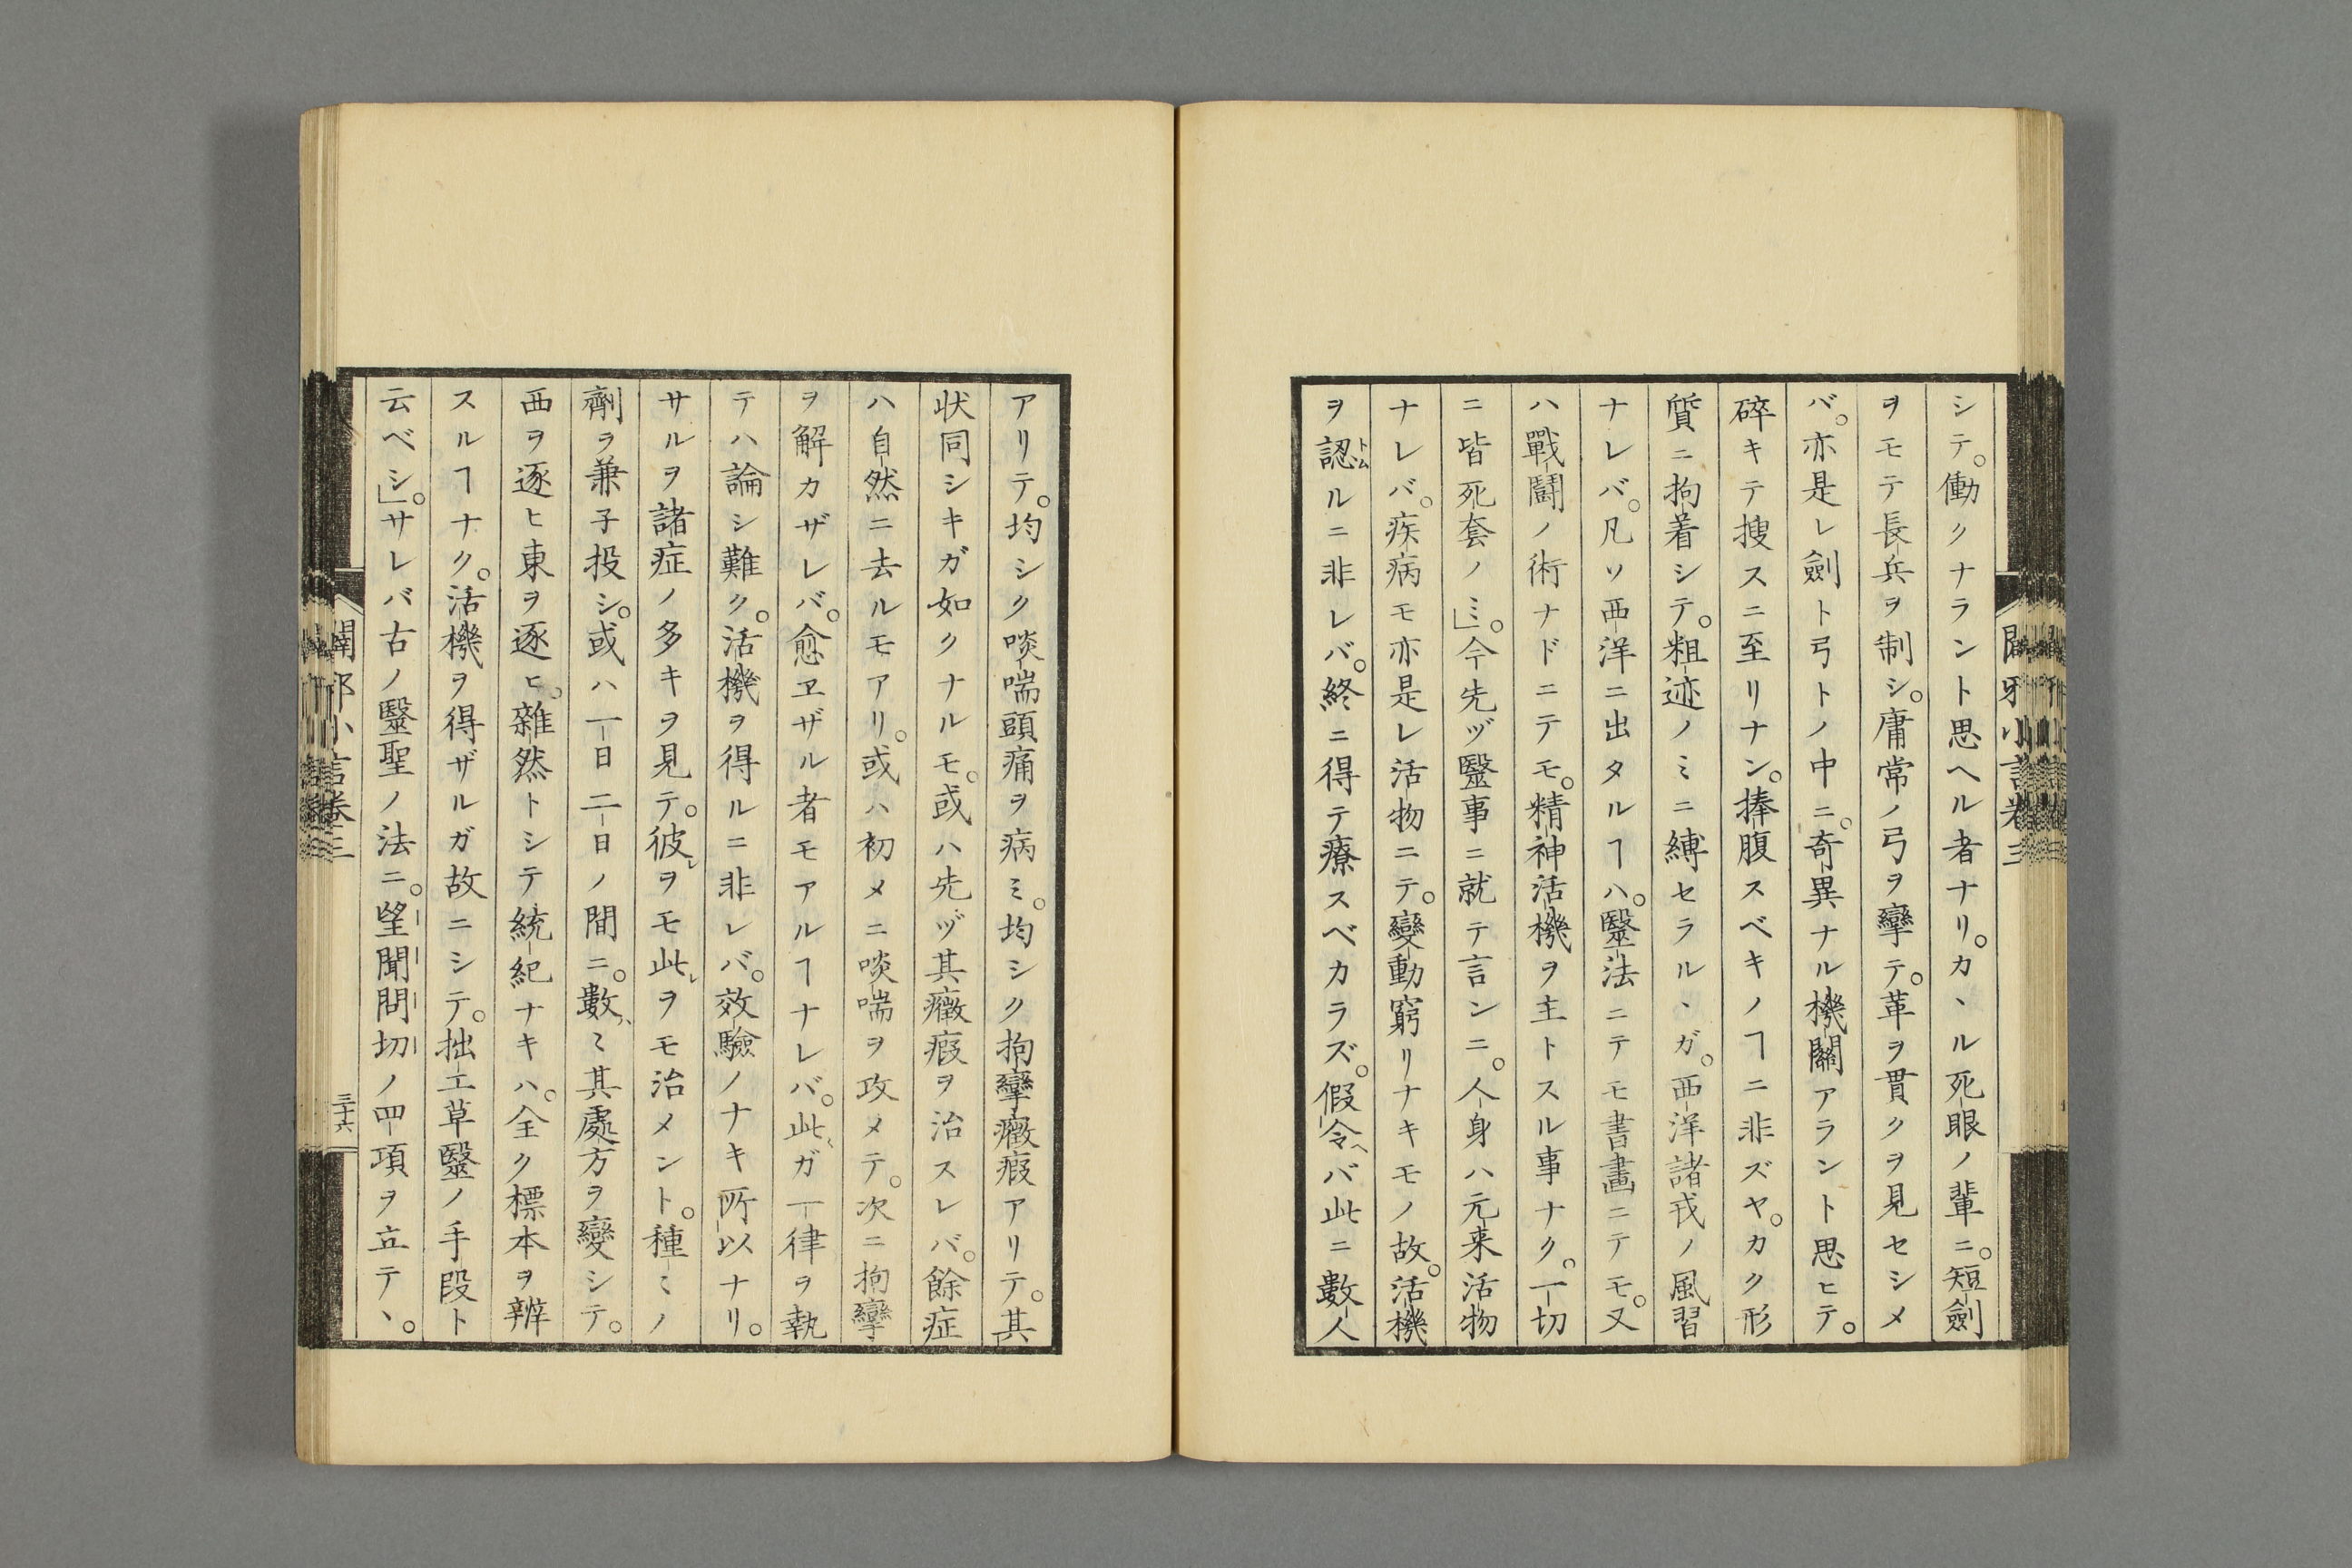 シテ。働クナラント思ヘル者ナリ。カヽル死眼ノ輩ニ。短劍
ヲモテ長兵ヲ制シ。庸常ノ弓ヲ攣テ。革ヲ貫クヲ見セシメ
バ。亦是レ劍ト弓トノ中ニ。奇異ナル機關アラント思ヒテ。
碎キテ搜スニ至リナン。捧腹スベキノヿニ非ズヤ。カク形
質ニ拘着シテ。粗迹ノミニ縛セラルヽガ。西洋諸戎ノ風習
ナレバ。凡ソ西洋ニ出タルヿハ。毉法ニテモ書畫ニテモ。又
ハ戰鬪ノ術ナドニテモ。精神活機ヲ主トスル事ナク。一切
ニ皆死套ノミ」。今先ヅ毉事ニ就テ言ンニ。人身ハ元来活物
ナレバ。疾病モ亦是レ活物ニテ。變動窮リナキモノ故。活機
ヲ認トムルニ非レバ。終ニ得テ療スベカラズ。假令ヘバ此ニ數人
アリテ。均シク啖喘頭痛ヲ病ミ。均シク拘攣癥瘕アリテ。其
状同シキガ如クナルモ。或ハ先ヅ其癥瘕ヲ治スレバ。餘症
ハ自然ニ去ルモアリ。或ハ初メニ啖喘ヲ攻メテ。次ニ拘攣
ヲ解カザレバ。愈ヱザル者モアルヿナレバ。此ガ一律ヲ執
テハ論シ難ク。活機ヲ得ルニ非レバ。效驗ノナキ所以ナリ。
サルヲ諸症ノ多キヲ見テ。彼レヲモ此レヲモ治メント。種ミノ
劑ヲ兼子投シ。或ハ一日二日ノ間ニ。數〻ミ其處方ヲ變シテ。
西ヲ逐ヒ東ヲ逐ヒ。雜然トシテ統紀ナキハ。全ク標本ヲ辨
スルヿナク。活機ヲ得ザルガ故ニシテ。拙工草毉ノ手段ト
云ベシ」。サレバ古ノ毉聖ノ法ニ。望聞問切ノ四項ヲ立テヽ。
閑邪小言卷三
三十六